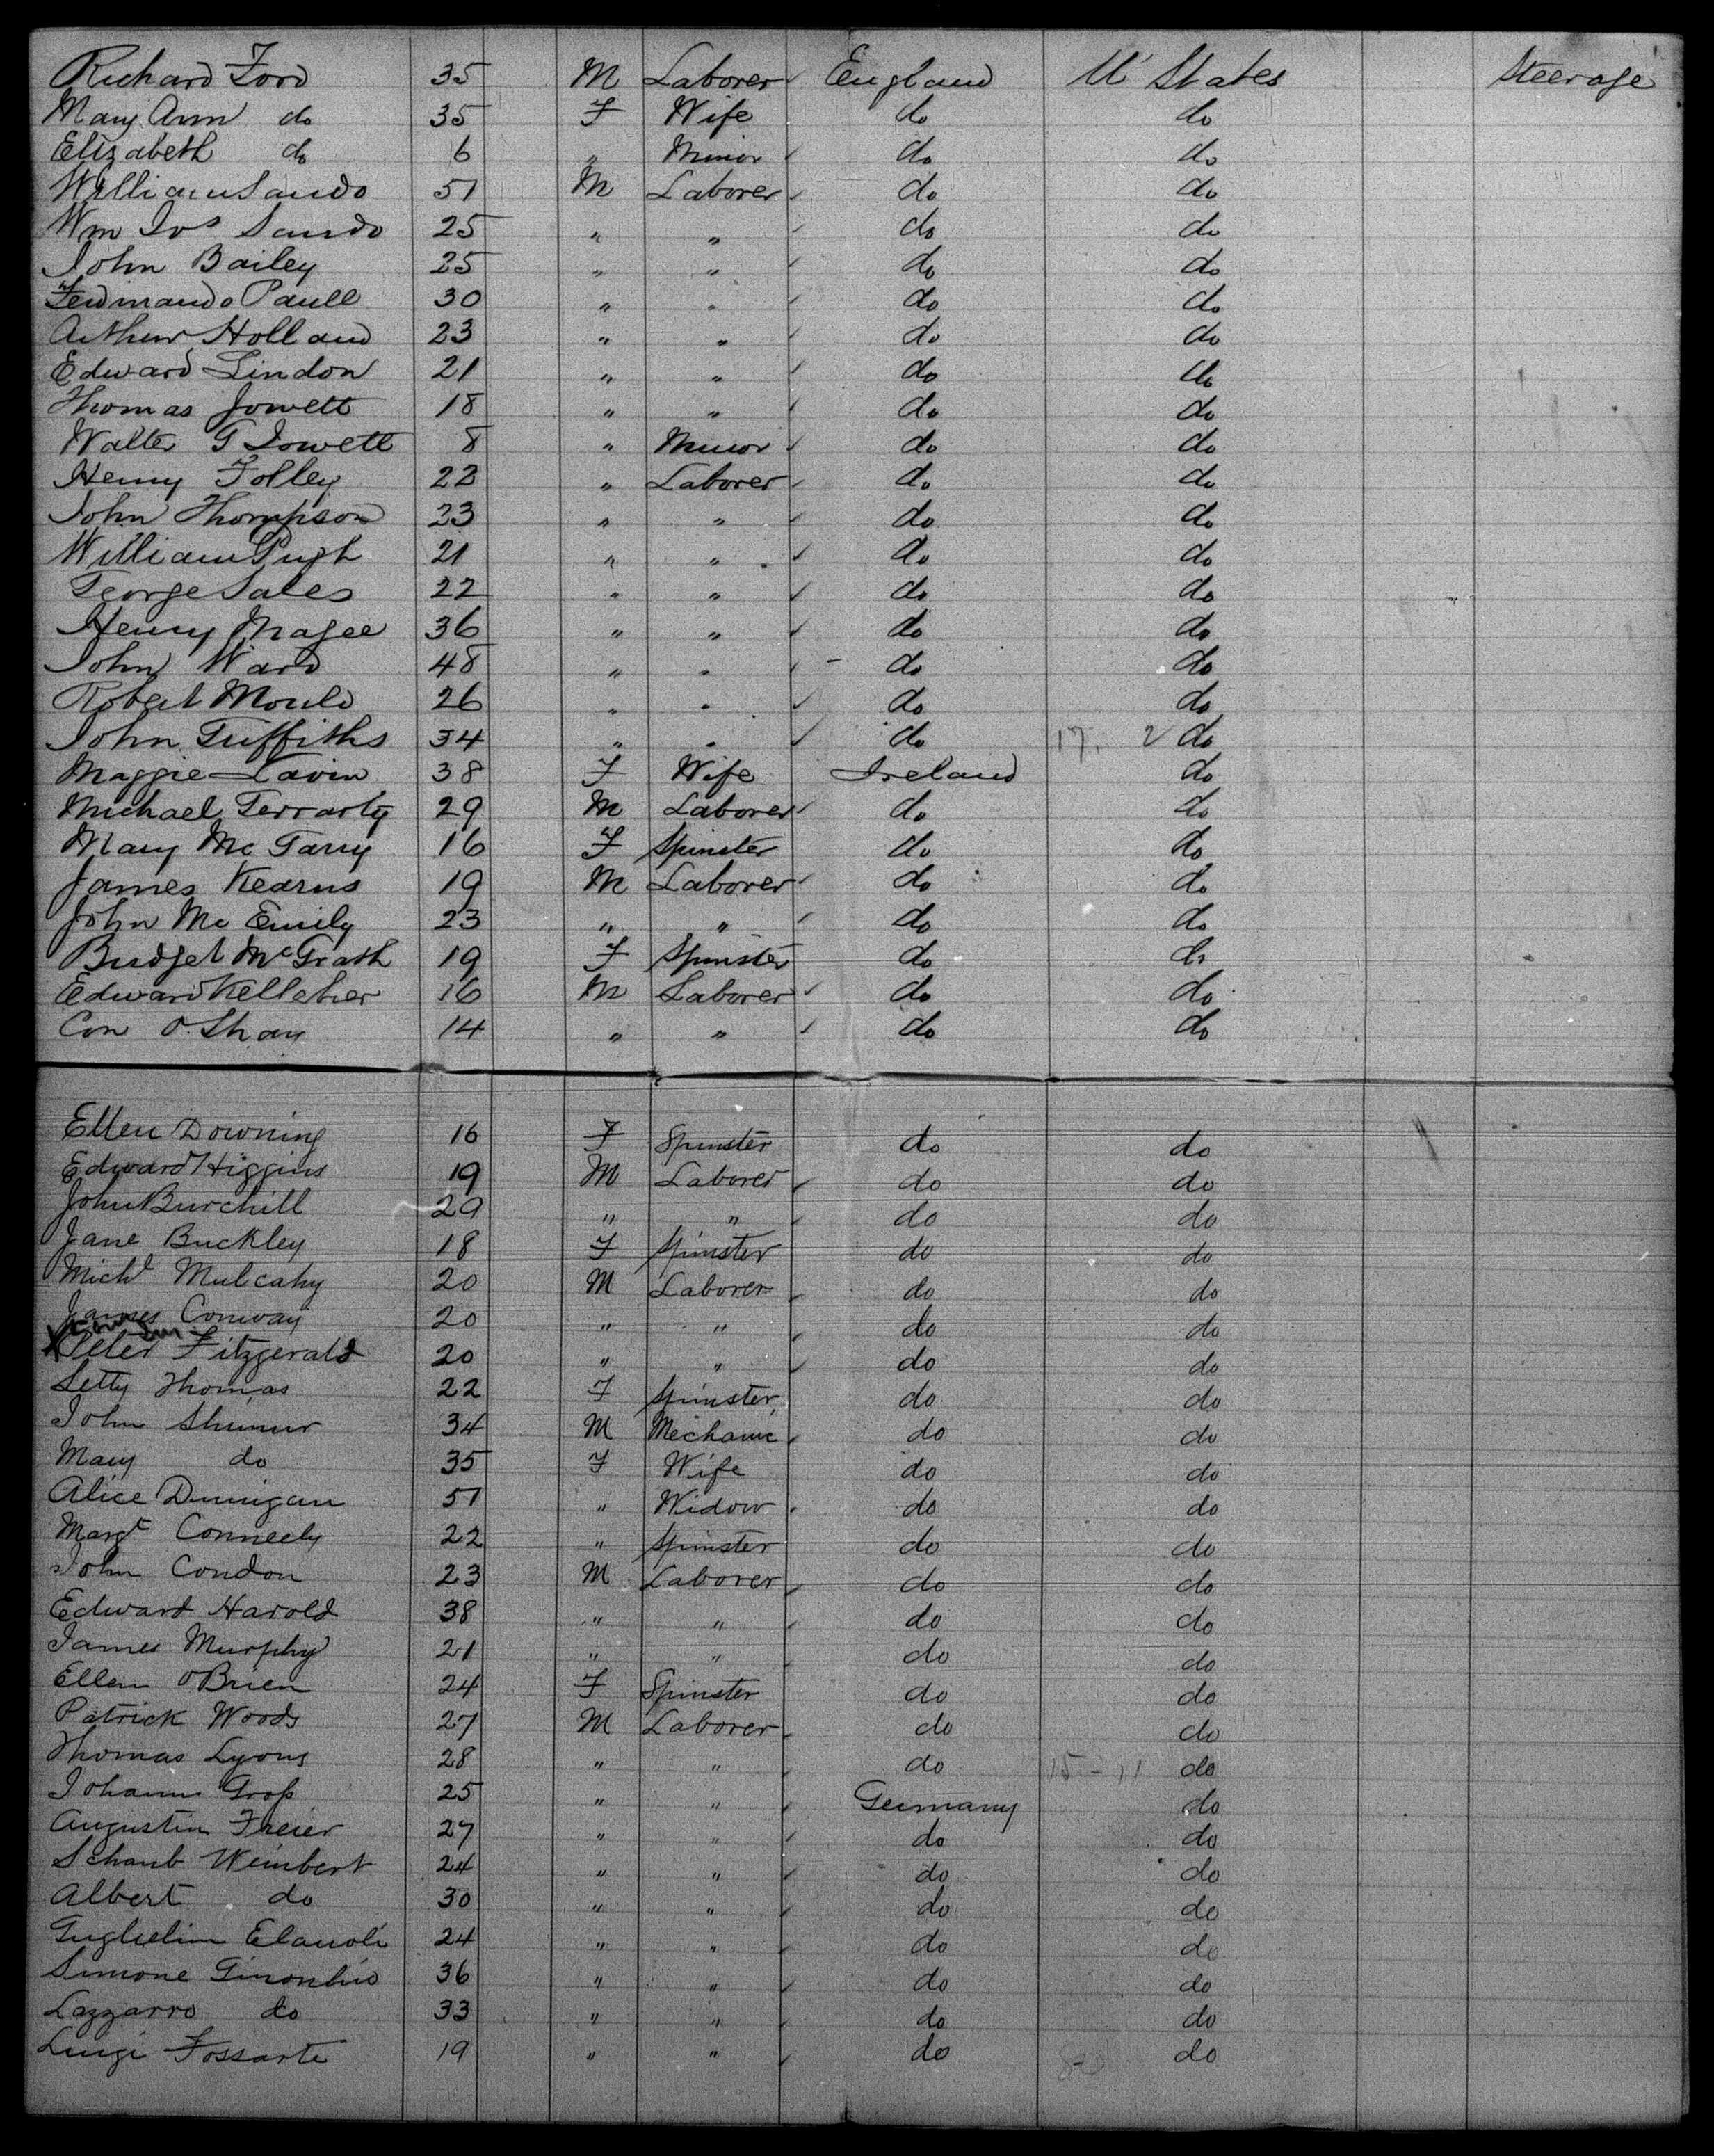 Richard Ford 35 M Laborer England U States Steerage
Mary Ann do 35 F Wife do do
Elizabeth do 6 " Minor do do
William Sando 51 M Laborer do do
Wm Jos Sando 25 " " do do
John Bailey 25 " " do do
Ferdinando Paull 30 " " do do
Arthur Holland 23 " " do do
Edward Lindon 21 " " do do
Thomas Jowett 18 " " do do
Walter G Jowett 8 " Minor do do
Henry Folley 22 " Laborer do do
John Thompson 23 " " do do
William Pugh 21 " " do do
George Sales 22 " " do do
Henry Magee 36 " " do do
John Ward 48 " " do do
Robert Mould 26 " " do do
John Griffiths 34 " " do 17. 2 do
Maggie Lavin 38 F Wife Ireland do
Michael Gerrarty 29 M Laborer do do
Mary Mc Garry 16 F Spinster do do
James Kearns 19 M Laborer do do
John Mc Emily 23 " " do do
Bridget McGrath 19 F Spinster do do
Edward Kelleher 16 M Laborer do do
Con O.Shay 14 " " do do
Ellen Downing 16 F Spinster do do
Edward Higgins 19 M Laborer do do
John Burchill 29 " " do do
Jane Buckley 18 F Spinster do do
Michl Mulcahy 20 M Laborer do do
James Conway 20 " " do do
Peter Fitzgerald 20 " " do do
Letty Thomas 22 F Spinster do do
John Shimur 34 M Mechanic do do
Mary do 35 F Wife do do
Alice Dunigan 51 " Widow do do
Margt Conneely 22 " Spinster do do
John Condon 23 M Laborer do do
Edward Harold 38 " " do do
James Murphy 21 " " do do
Ellen O'Brien 24 F Spinster do do
Patrick Woods 27 M Laborer do do
Thomas Lyons 28 " " do 15 - 11 do
Johann Groß 25 " " Germany do
Augustin Freier 27 " " do do
Schaub Weinbert 24 " " do do
Albert do 30 " " do do
Guglielim 24 " " do do
Simone 36 " " do do
Lazzarro do 33 " " do do
Luigi Fossarte 19 " " do do